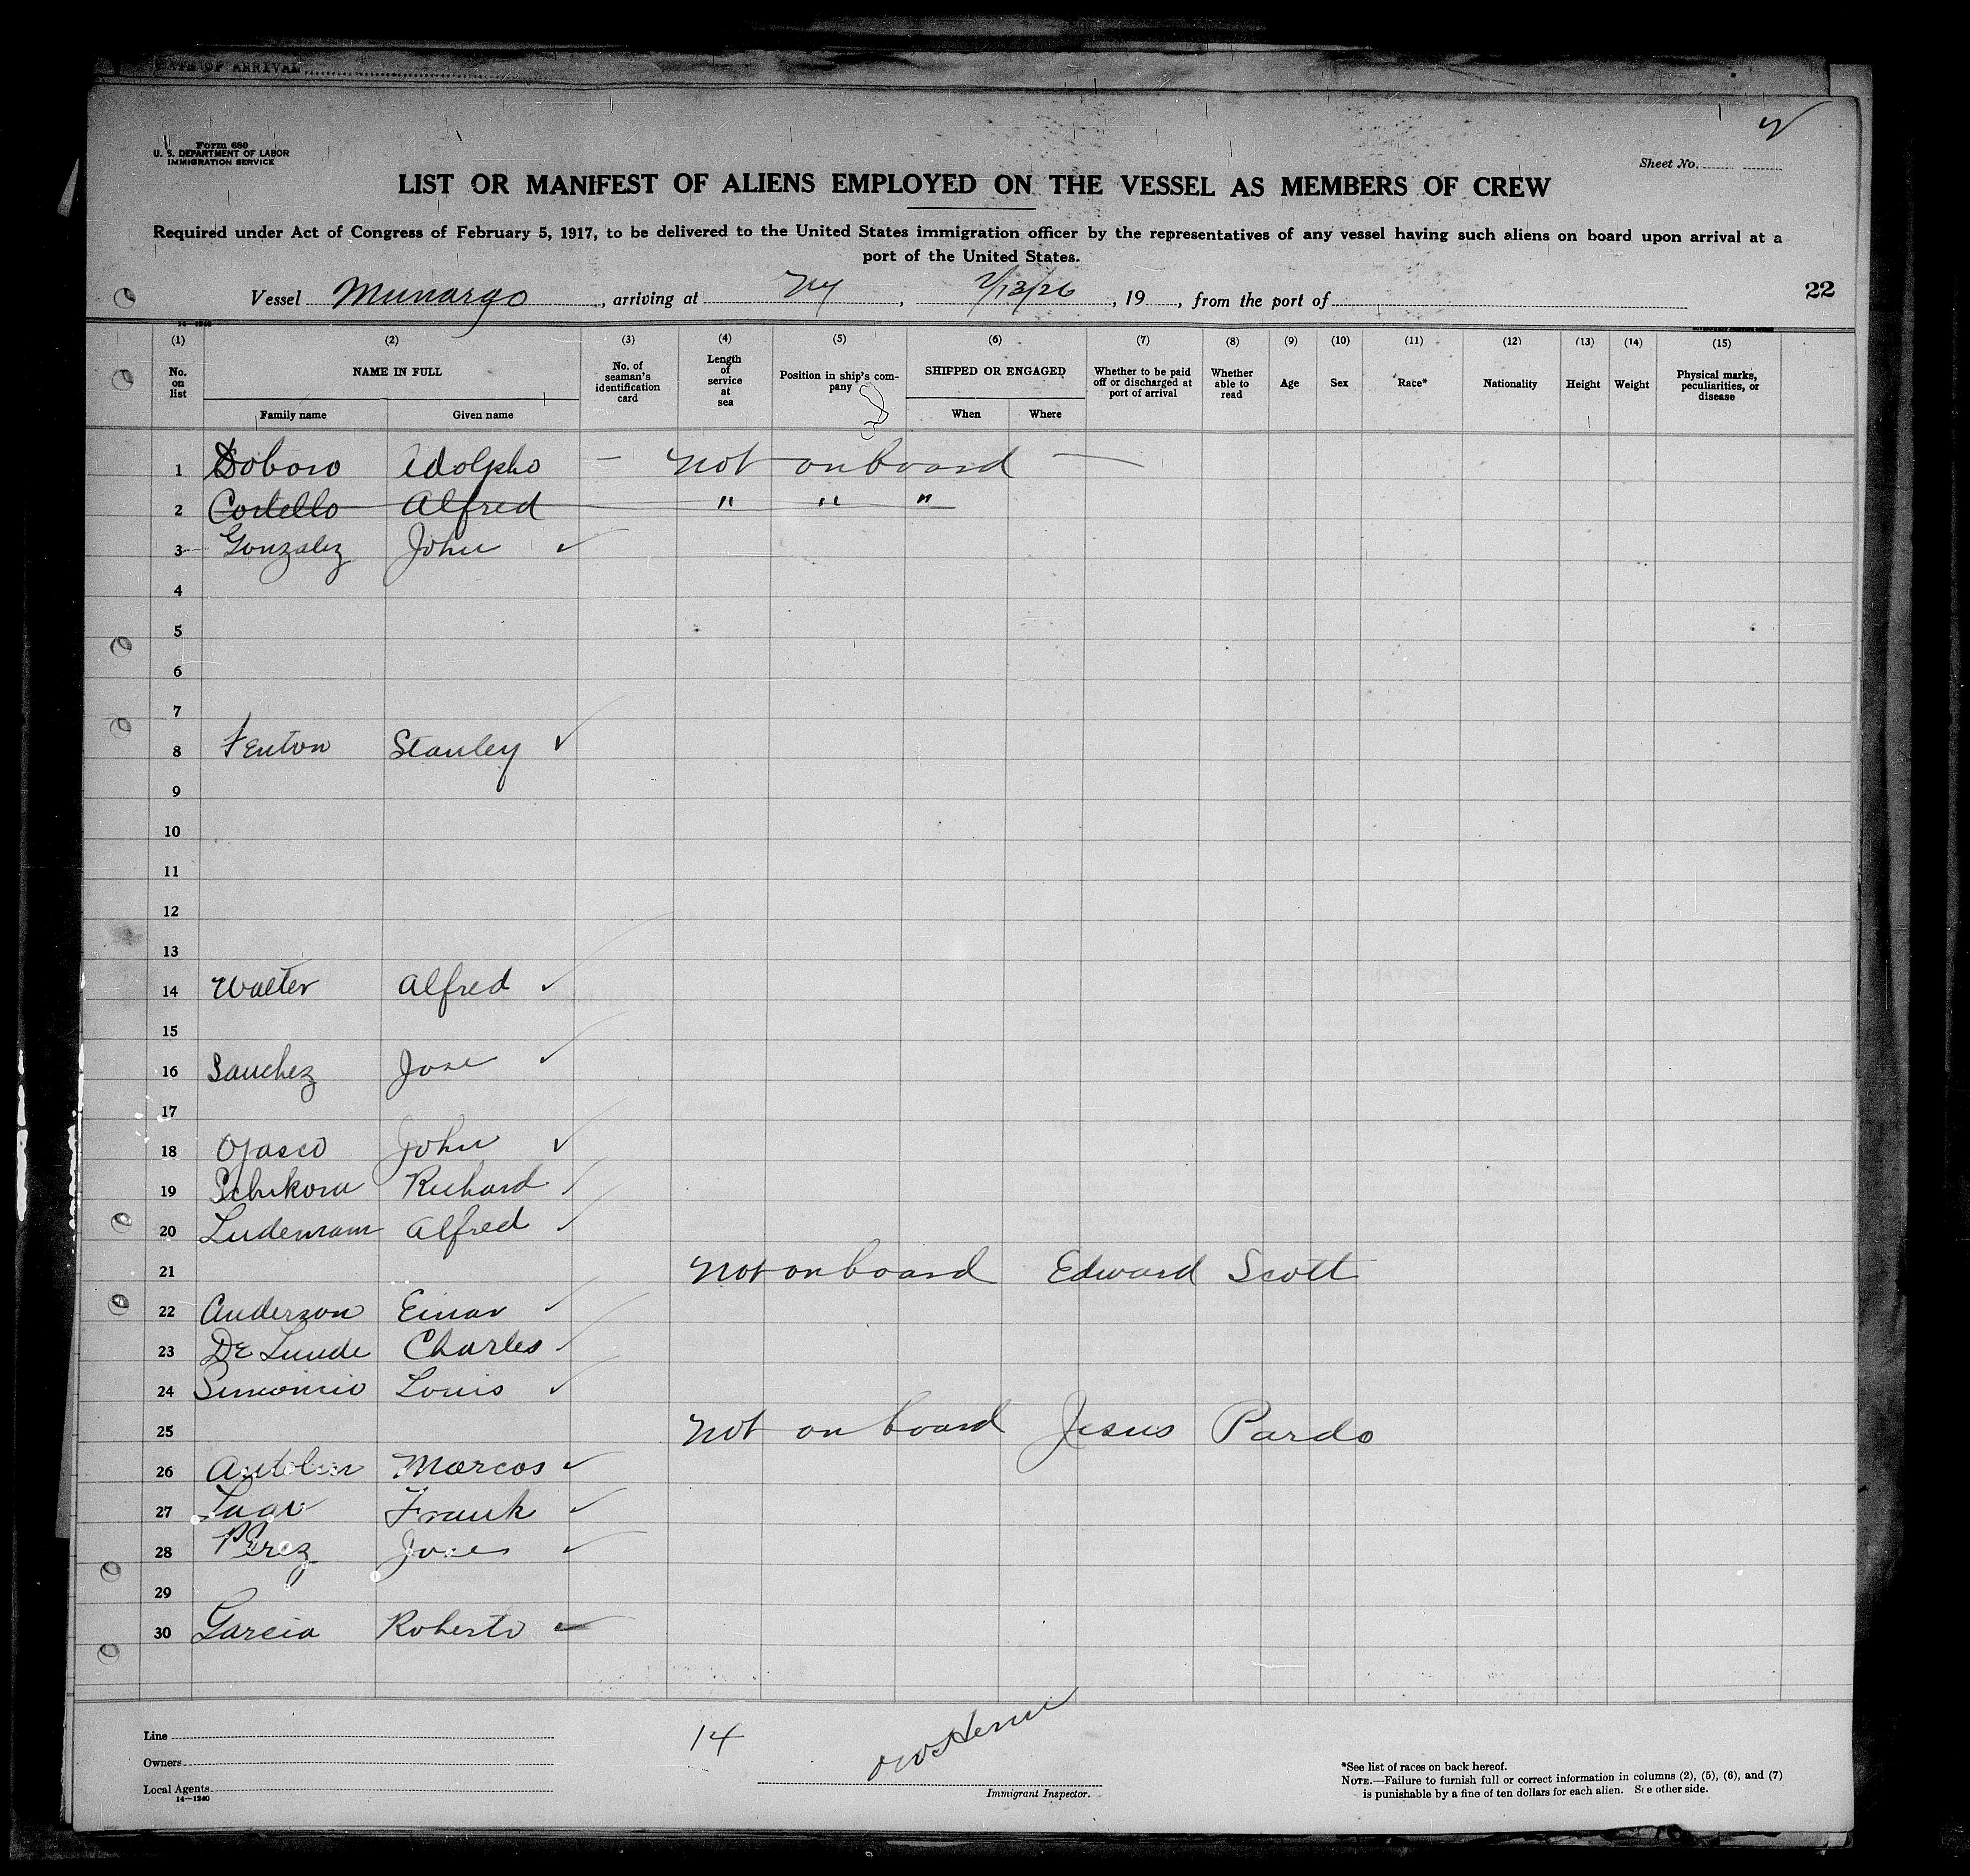 DATE OF ARRIVAL
Form 680
U. S. DEPARTMENT OF LABOR
IMMIGRATION SERVICE
Sheet No.
LIST OR MANIFEST OF ALIENS EMPLOYED ON THE VESSEL AS MEMBERS OF CREW
Required under Act of Congress of February 5, 1917, to be delivered to the United States immigration officer by the representatives of any vessel having such aliens on board upon arrival at a
port of the United States.
Vessel Munargo, arriving at NY, 2/13/26, 19 , from the port of
22
(1) (2) (3) (4) (5) (6) (7) (8) (9) (10) (11) (12) (13) (14) (15)
No. on list NAME IN FULL No. of seaman's identification card Length of service at sea Position in ship's company SHIPPED OR ENGAGED Whether to be paid off or discharged at port of arrival Whether able to read Age Sex Race* Nationality Height Weight Physical marks, peculiarities, or disease
Family name Given name When Where
1 Doboro Adolpho — not on board —
2 Costello Alfred " " "
3 Gonzalez John ✓
4
5
6
7
8 Fenton Stanley ✓
9
10
11
12
13
14 Walter Alfred ✓
15
16 Sanchez Jose ✓
17
18 Ojasco John ✓
19 Richard ✓
20 Ludemam Alfred ✓
21 not on board Edward Scott
22 Anderson Einar ✓
23 De Lunde Charles ✓
24 Louis ✓
25 not on board Jesus Pardo
26 Antolin Marcos ✓
27 Frank ✓
28 Perez ✓
29
30 Garcia Roberto ✓
Line
Owners
Local Agents
14—1240
14
Immigrant Inspector.
*See list of races on back hereof.
NOTE.—Failure to furnish full or correct information in columns (2), (5), (6), and (7)
is punishable by a fine of ten dollars for each alien. See other side.